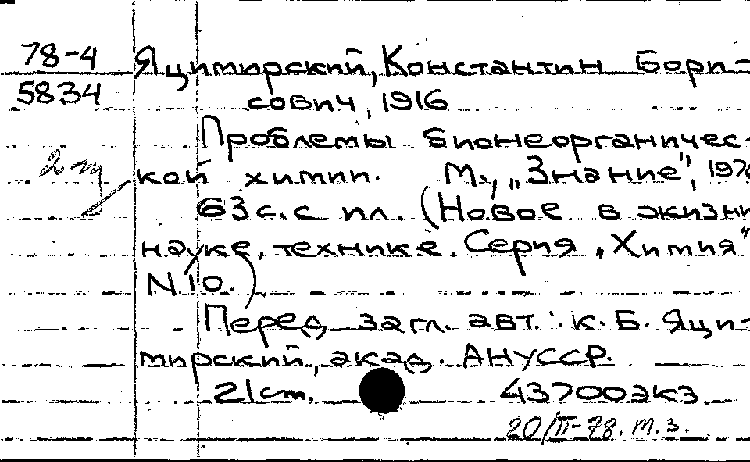 78-4 Яцимирский, Константин Бори-
5834 сович, 1916
Проблемы бионеорганичес-
кой химии. М., "Знание", 197
63 с. с ил. (Новое в жизни
науке, технике. Серия "Химия"
N 10.)
Перед загл. авт.: К. Б. Яци-
мирский, акад. АН УССР.
21 cm. 43700 экз.
20/II-78. т. з.